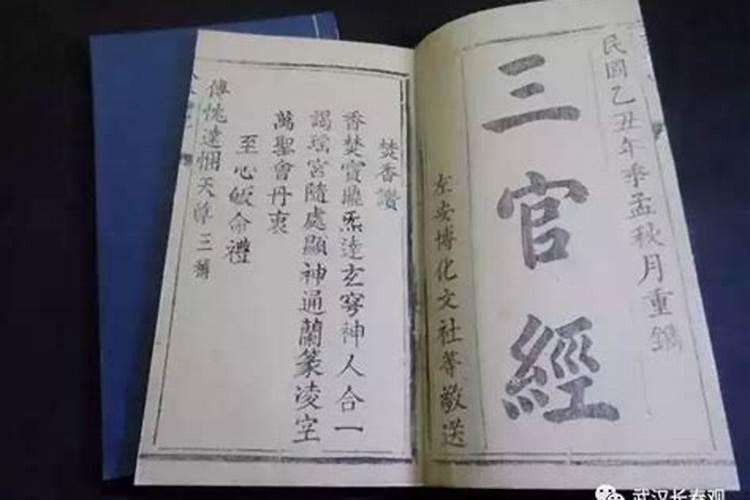 民國乙丑年季孟秋月重鐫
三官經
左安博化文社等敬送
焚香讚
香焚寳鼎炁達玄穹神人合一
謁瑤宮隨處顯神通蘭篆凌空
萬聖會丹衷
至心皈命禮
傳愧達悃天尊三稱
武汉长春观